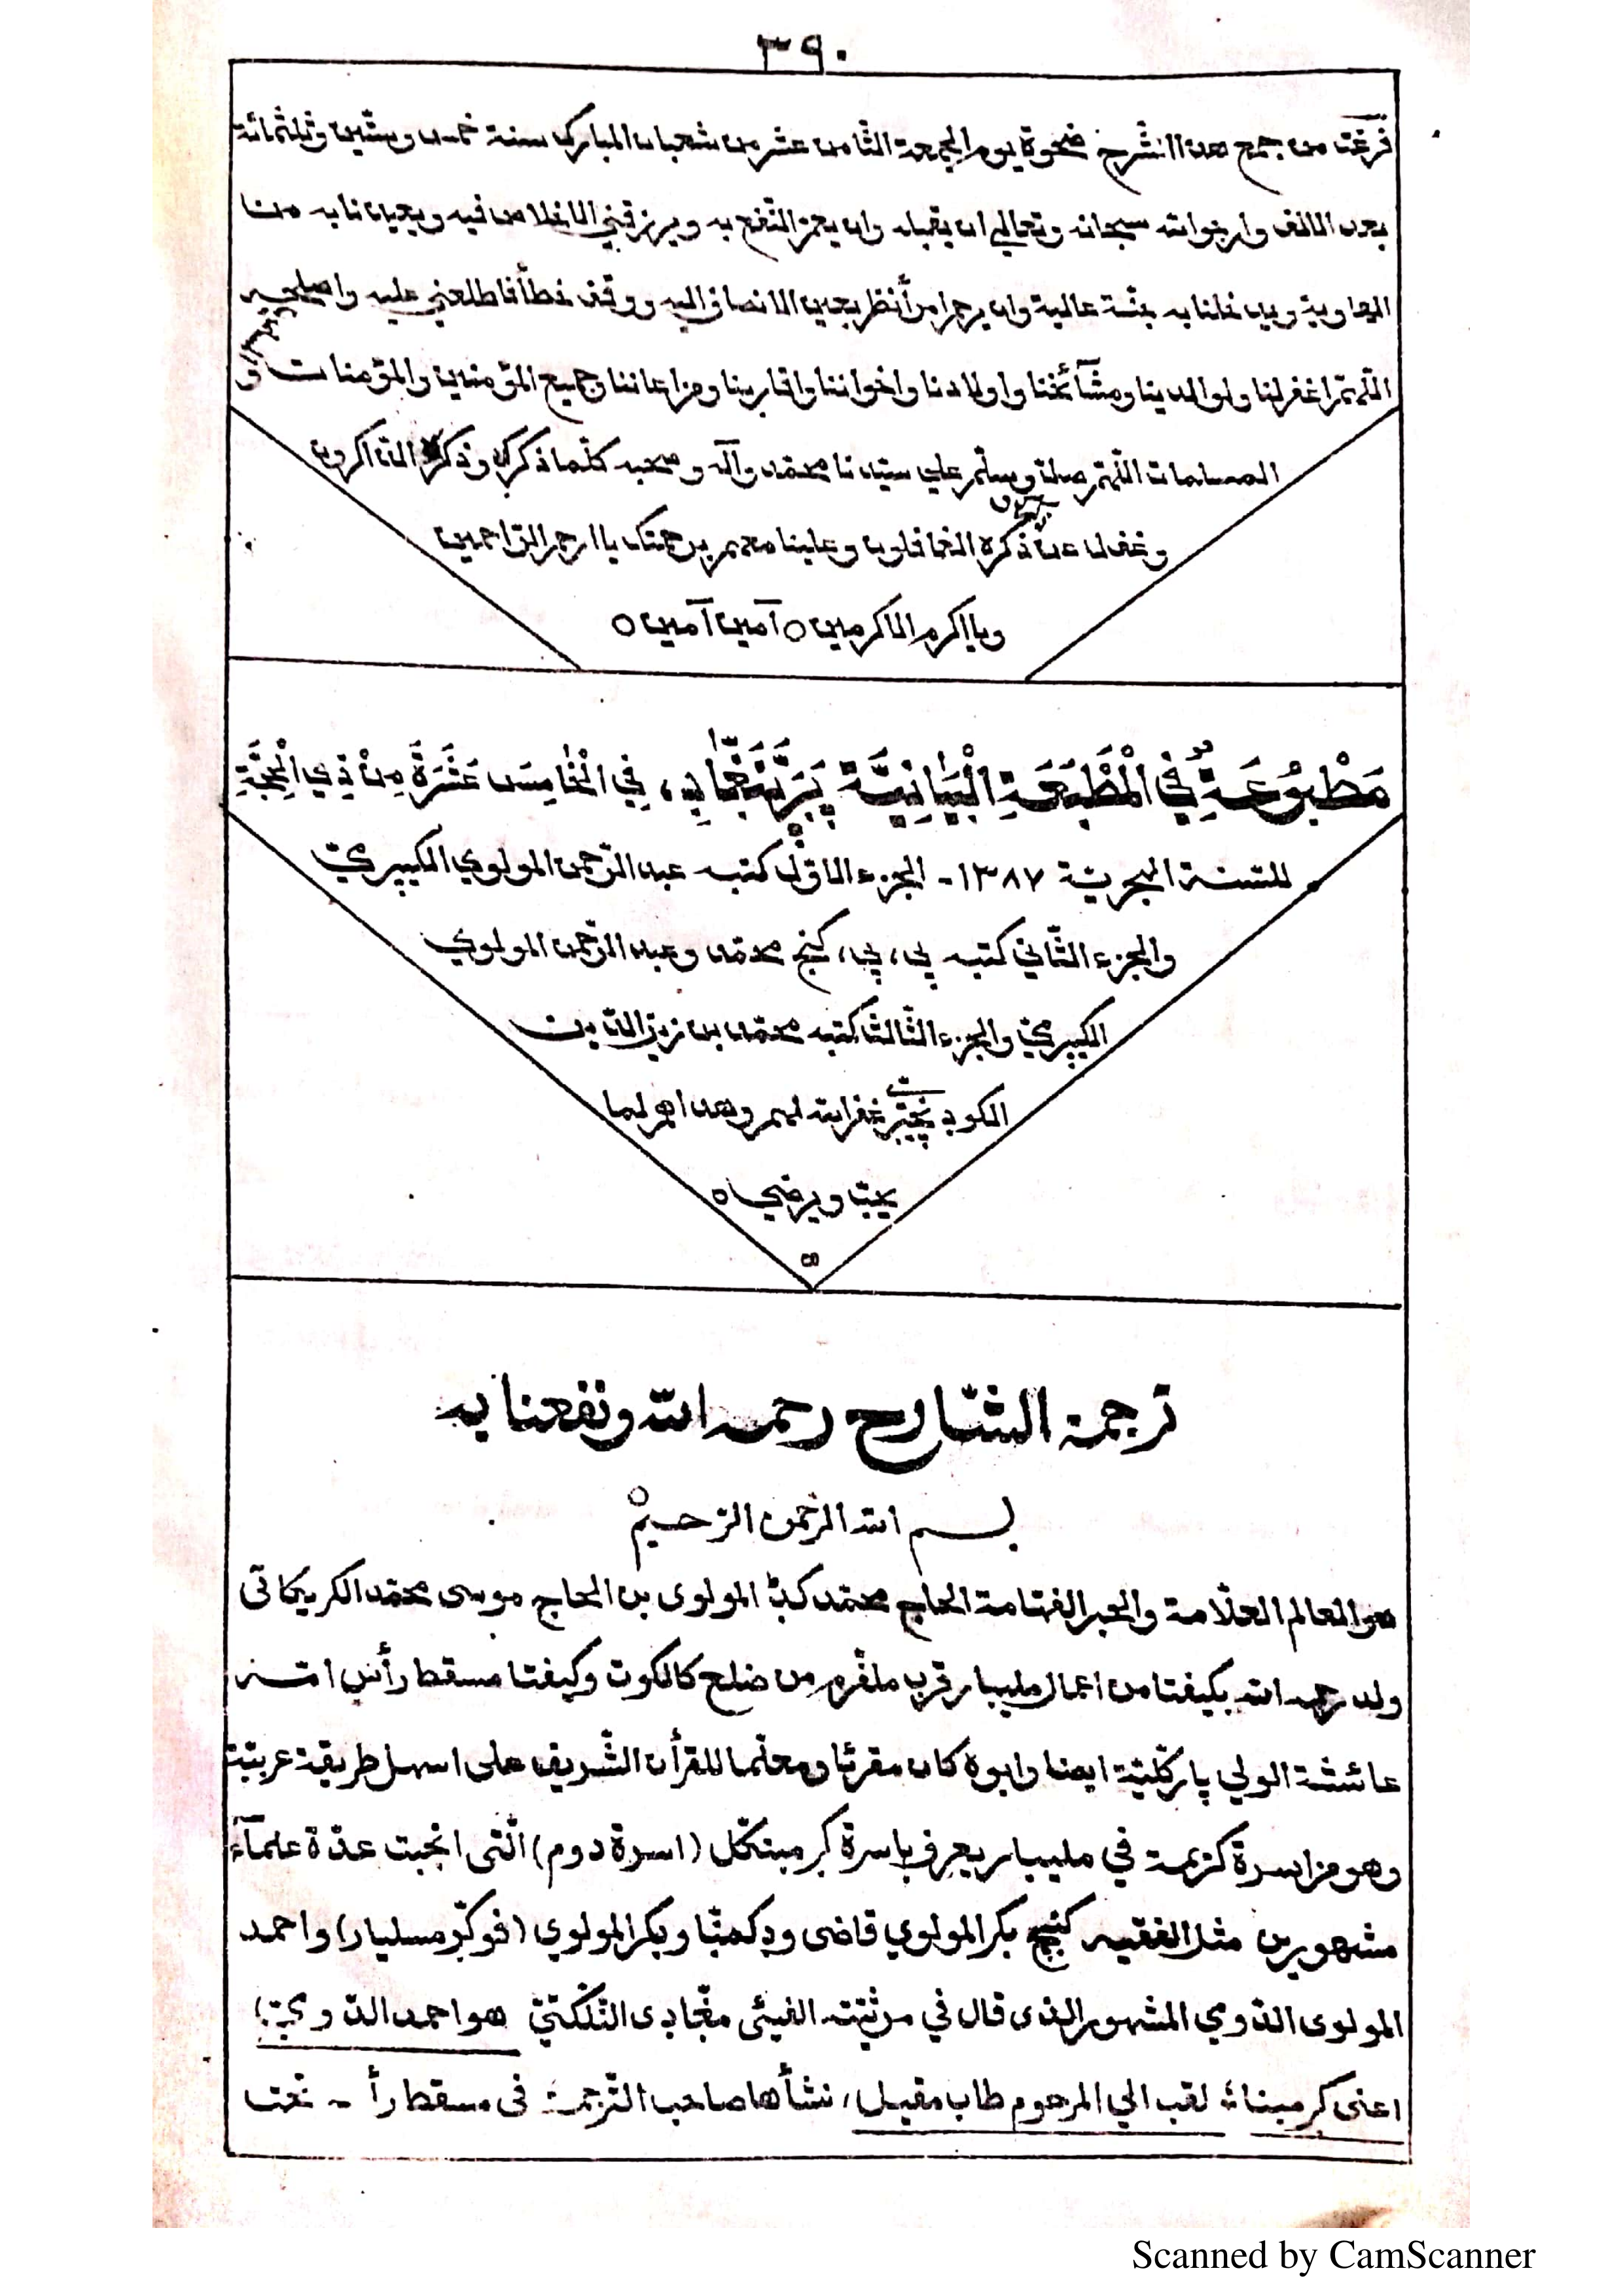 ٣٩٠
فرغت من جمع هذا الشرح ضحوة يوم الجمعة الثامن عشر من شعبان المبارك سنة خمس وستين وثلثمائة
بعد الالف وارجو الله سبحانه وتعالى ان يقبله وان يعم النفع به ويرزقني الاخلاص فيه ويعيذنا به من
الهاوية ويدخلنا به جنة عالية وان يرحم امرأ نظر بعين الانصاف اليه ووقف خطأ فاطلعني عليه واصلحه
اللهم اغفر لنا ولوالدينا ومشآئخنا واولادنا واخواننا واقاربنا وجميع المؤمنين والمؤمنات و
المسلمات اللهم صل وسلم علي سيدنا محمد وآله وصحبه كلما ذكرك وذكره الذاكرون
وغفل عن ذكره الغافلون وعلينا معهم برحمتك يا ارحم الراحمين
ويا اكرم الاكرمين ٥ آمين آمين ٥
مَطْبُوعَةٌ فِي الْمَطْبَعَةِ الْبَيَانِيَّةِ پَرَپَّنَنْغَادِ، فِي الْخَامِسَ عَشَرَةَ مِنْ ذِي الْحِجَّةِ
للسنة الهجرية ١٣٨٧ - الجزء الاول كتبه عبد الرحمن المولوي الكيپري
والجزء الثاني كتبه پي، پي، كنج محمد وعبد الرحمن المولوي
الكيپري والجزء الثالث كتبه محمد بن زين الدين
غفر الله لهم وهداهم لما
يحب ويرضي ٥
ترجمة الشارح رحمه الله ونفعنا به
بسم الله الرحمن الرحيم
هو العالم العلامة والحبر الفهامة الحاج محمد كٹ المولوى بن الحاج موسى محمد الكريكاتى
ولد رحمه الله بكيفتا من اعمال مليبار قرب ملفرم من ضلع كالكوت وكيفتا مسقط رأس امه
عائشة الولي پاركلية ايضا وابوه كان مقرئا ومعلما للقرأن الشريف على اسهل طريقة عربية
وهو من اسرة كريمة في مليبار يعرف باسرة كرمبنكل (اسرة دوم) التى انجبت عدة علمآء
مشهورين مثل الفقيه كنج بكر المولوي قاضى وبكر المولوي (فوكر مسليار) واحمد
المولوى الدوي المشهور الذى قال في مرثيته النلكتي هو احمد الدوي؛
اعنى كرمبنا لقب الي المرحوم طاب مقيل، نشأ ها صاحب الترجمة فى مسقط رأ - تحت
Scanned by CamScanner